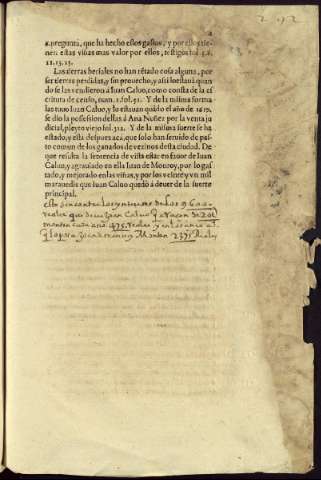 2. pregunta, que ha hecho estos gastos, y por ellos tie-
nen estas viñas mas valor por ellos, testigos fol. 5. 8.
11. 13. 15.
Las tierras heriales no han rētado cosa alguna, por
ser tierras perdidas, y sin prouecho, y assi lo estauā quan
do se las vendieron a Iuan Caluo, como consta de la es
critura de censo, num. 1. fol. 51. Y de la misma forma
las tuuo Iuan Caluo, y lo estauan quādo el año de 1617,
se dio la possession dellas â Ana Nuñez por la venta ju
dicial, pleyto viejo fol. 312. Y de la misma suerte se hā
estado, y està despues acà, que solo han seruido de pas-
to comun de los ganados de vezinos desta ciudad. De
que resulta la sentencia de vista està en fauor de Iuan
Caluo, y agrauiado en ella Iuan de Monroy, por lo gas
tado, y mejorado en las viñas, y por los veinte y vn mil
marauedis que Iuan Caluo quedò a deuer de la suerte
principal.
de los 9600
reales que deue Juan Caluo
475 Reales
Montan 2375 Reales